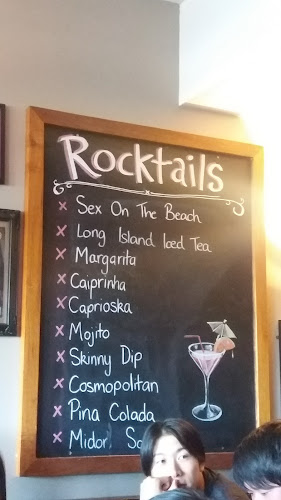 Rocktails
x Sex On The Beach
x Long Island Iced Tea
x Margarita
x Caiprinha
x Caprioska
x Mojito
x Skinny Dip
x Cosmopolitan
x Pina Colada
x Midori